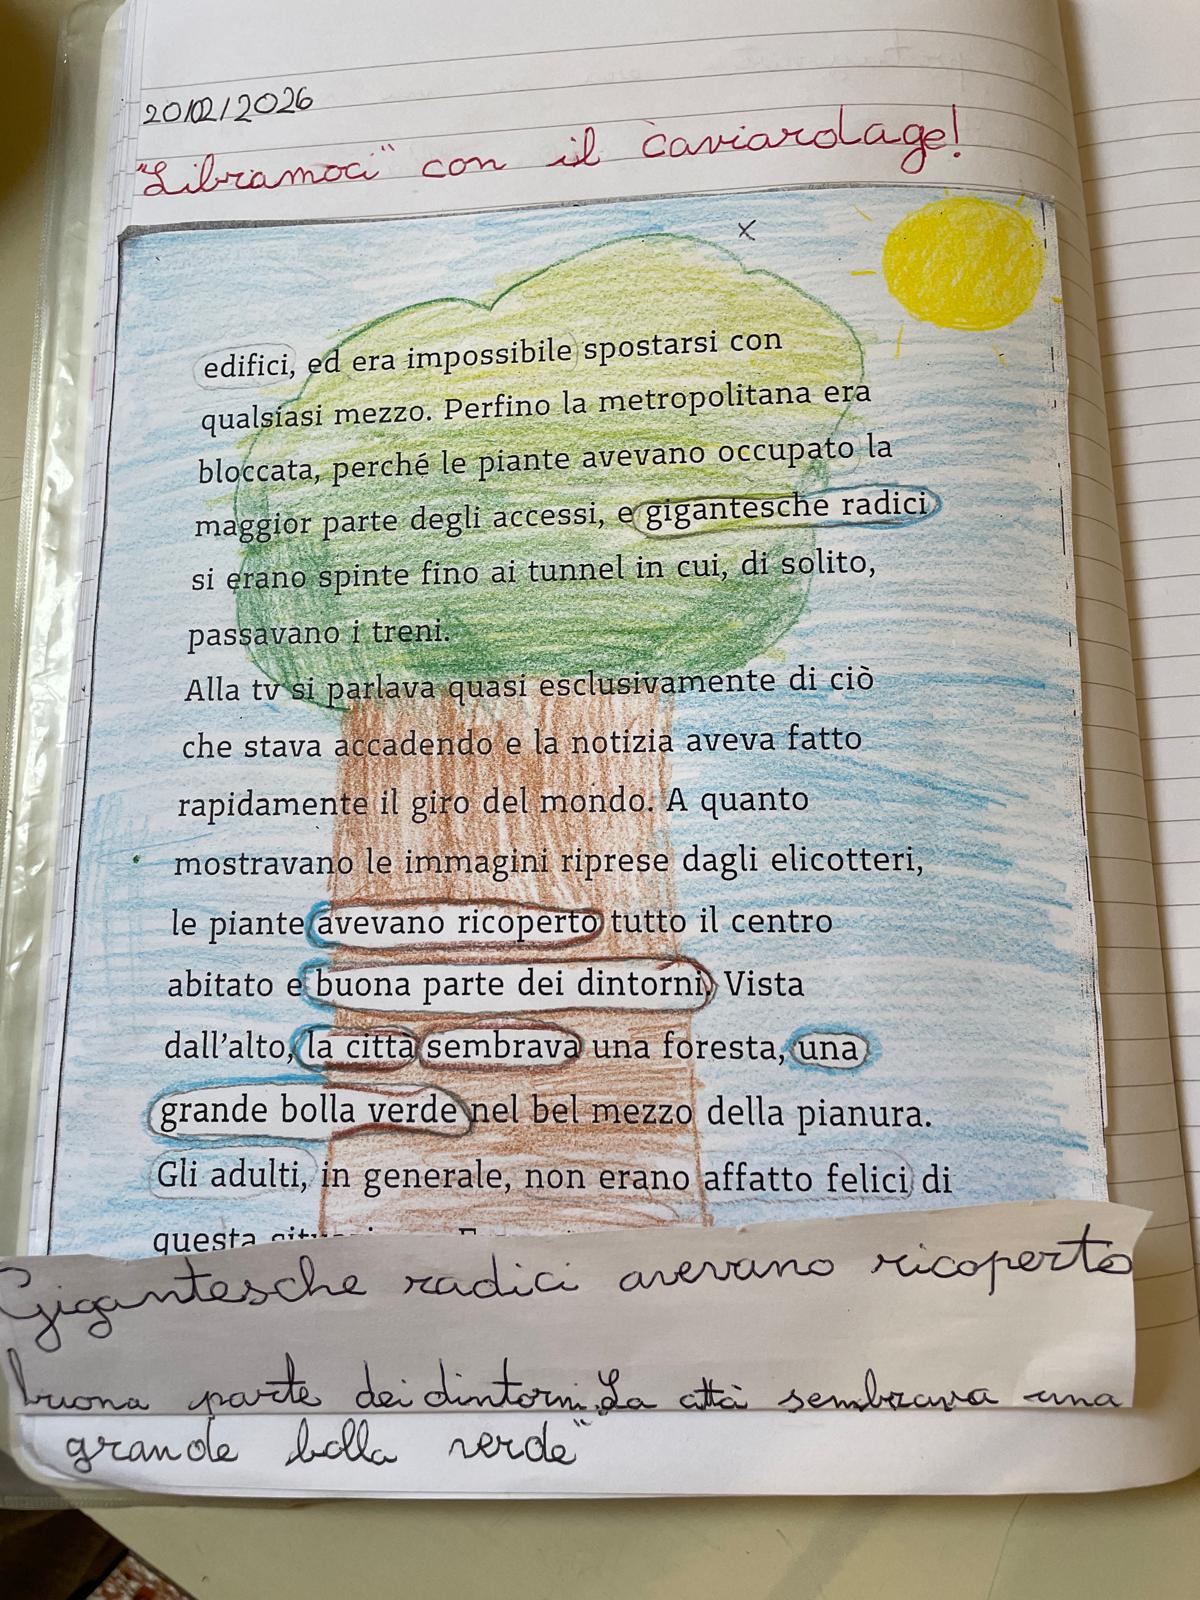 20/02/2026
"Libramoci" con il caviardage!
x
edifici, ed era impossibile spostarsi con
qualsiasi mezzo. Perfino la metropolitana era
bloccata, perché le piante avevano occupato la
maggior parte degli accessi, e gigantesche radici
si erano spinte fino ai tunnel in cui, di solito,
passavano i treni.
Alla tv si parlava quasi esclusivamente di ciò
che stava accadendo e la notizia aveva fatto
rapidamente il giro del mondo. A quanto
mostravano le immagini riprese dagli elicotteri,
le piante avevano ricoperto tutto il centro
abitato e buona parte dei dintorni. Vista
dall'alto, la città sembrava una foresta, una
grande bolla verde nel bel mezzo della pianura.
Gli adulti, in generale, non erano affatto felici di
questa
Gigantesche radici avevano ricoperto
buona parte dei dintorni. La città sembrava una
grande bolla verde"